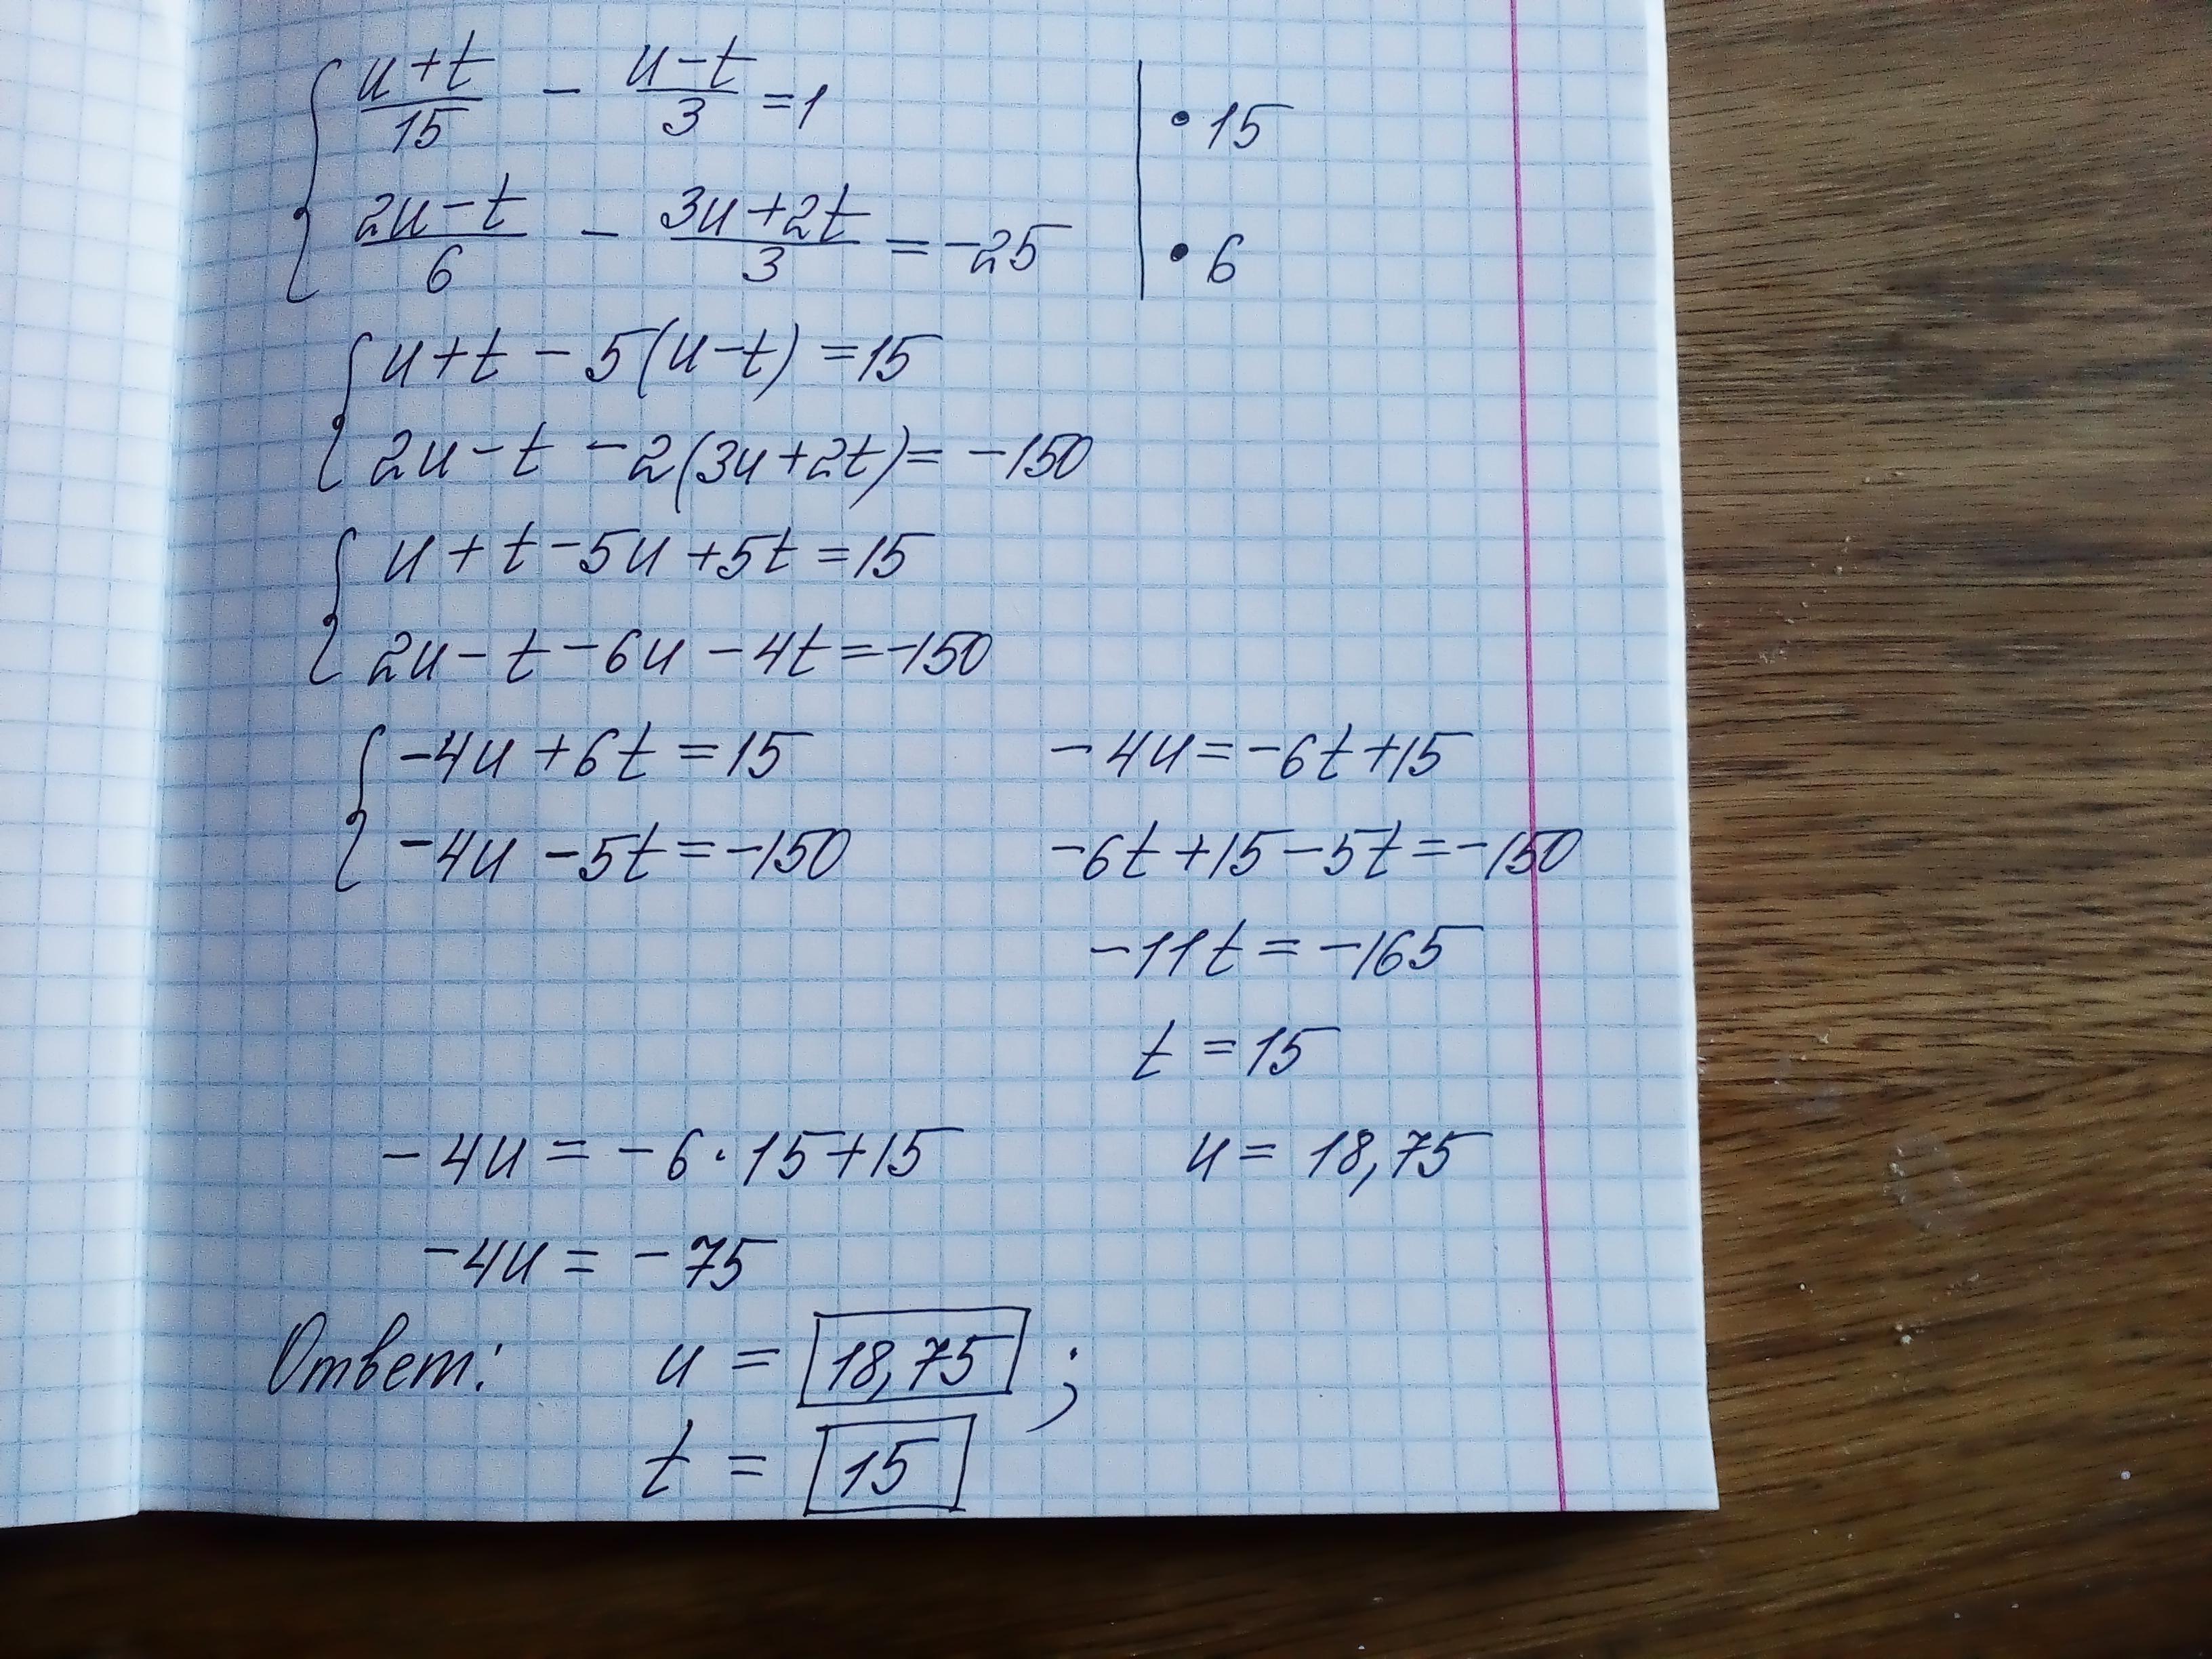 { (u+t)/15 - (u-t)/3 = 1 | · 15
(2u-t)/6 - (3u+2t)/3 = -25 | · 6
{ u+t - 5(u-t) = 15
2u-t - 2(3u+2t) = -150
{ u+t-5u+5t=15
2u-t-6u-4t=-150
{ -4u+6t=15
-4u-5t=-150
-4u=-6t+15
-6t+15-5t=-150
-11t=-165
t=15
-4u=-6·15+15
-4u=-75
u=18,75
Ответ: u = 18,75 ;
t = 15